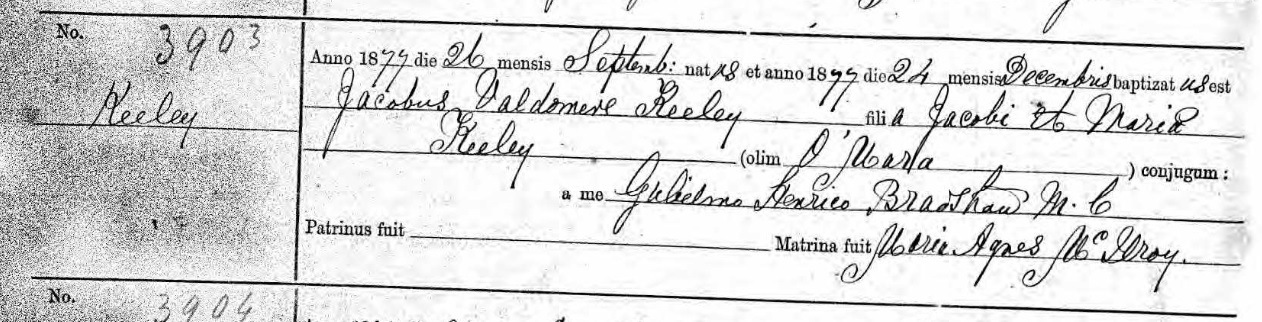 No. 3903
Keeley
Anno 1877 die 26 mensis Septemb: natus et anno 1877 die 24 mensis Decembris baptizatus est
Jacobus Valdomere Keeley filia Jacobi et Maria
Keeley (olim O'Mara ) conjugum :
a me Gulielmo Henrico Bradshaw M. C
Patrinus fuit Matrina fuit Maria Agnes McIlroy.
No. 3904